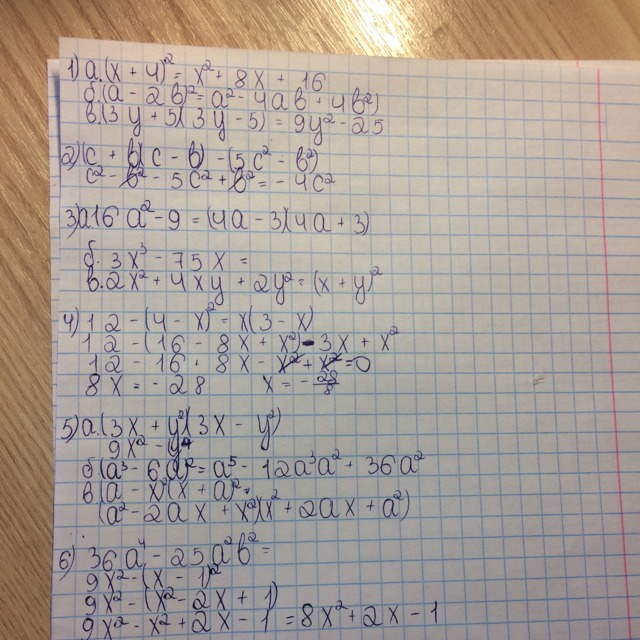 1) а.(x + 4)² = x² + 8x + 16
б.(a - 2b)² = a² - 4ab + 4b²)
в.(3y + 5)(3y - 5) = 9y² - 25
2)(c + b)(c - b) - (5c² - b²)
c² - b² - 5c² + b² = - 4c²
3)а16a² - 9 = (4a - 3)(4a + 3)
б. 3x³ - 75x =
в. 2x² + 4xy + 2y² = (x + y)²
4) 12 - (4 - x)² = x(3 - x)
12 - (16 - 8x + x²) - 3x + x²
12 - 16 + 8x - x² + x² = 0
8x = - 28 x = - 28/8
5) а.(3x + y²)(3x - y²)
9x² - y⁴
б(a³ - 6a)² = a⁵ - 12a³a² + 36a²
в(a - x)²(x + a)² =
(a² - 2ax + x²)(x² + 2ax + a²)
6) 36a⁴ - 25a²b² =
9x² - (x - 1)²
9x² - (x² - 2x + 1)
9x² - x² + 2x - 1 = 8x² + 2x - 1